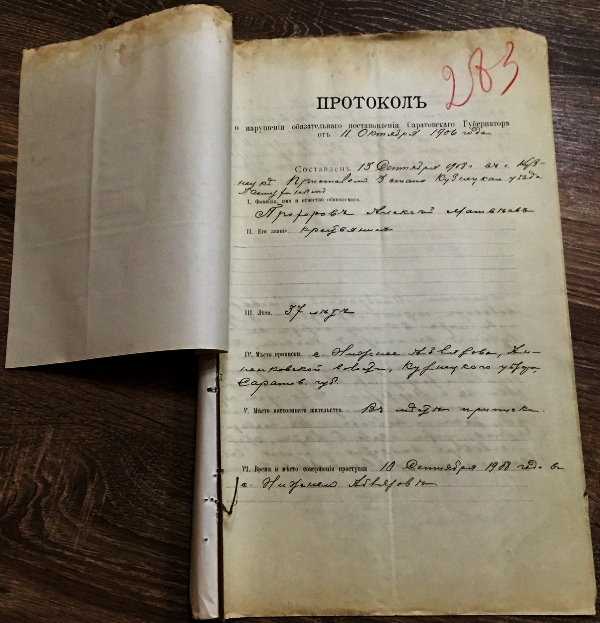 283
ПРОТОКОЛЪ
о нарушеніи обязательнаго постановленія Саратовскаго Губернатора
отъ 11 Октября 1906 года
Составленъ 15 Сентября 1908 г. въ г. Куз-
нецкѣ Приставомъ 3 стана Кузнецкаго уѣзда
I. Фамилія, имя и отчество обвиняемаго.
Прохоровъ Алексѣй Матвѣевъ
II. Его званіе крестьянинъ
III. Лѣта. 37 лѣтъ
IV. Мѣсто приписки. с. Нижнее Аблязово, Ан-
ненковской волости, Кузнецкого уѣзда,
Саратов. губ.
V. Мѣсто постояннаго жительства. Въ мѣстѣ приписки.
VI. Время и мѣсто совершенія проступка 10 Сентября 1908 года въ
с. Нижнем Аблязовѣ